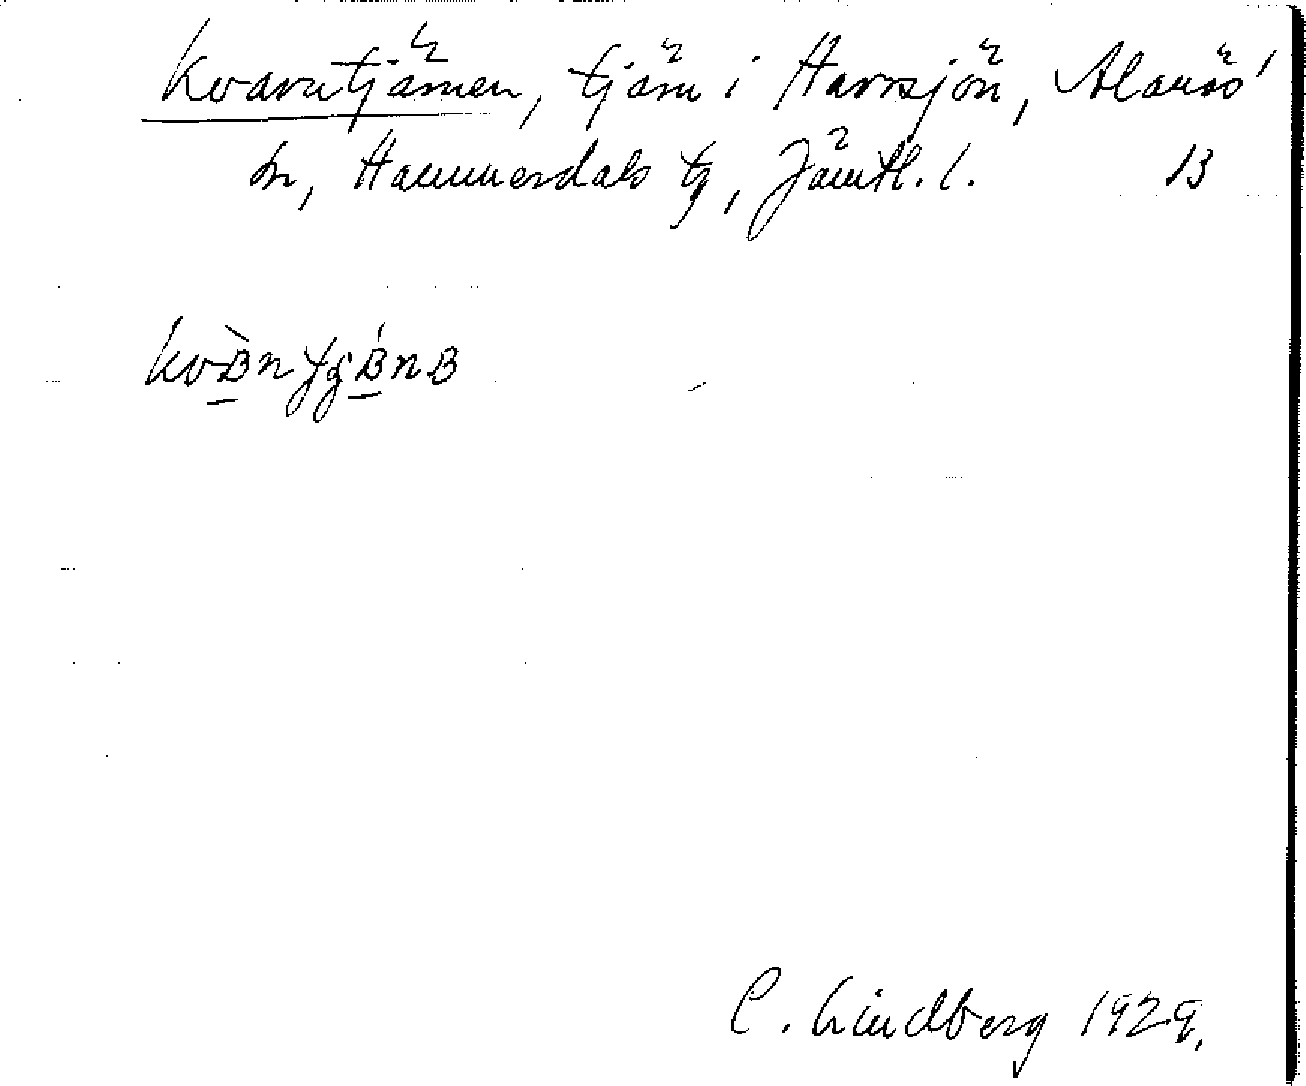 Kvarntjärnen, tjärn i Harrsjön, Alanäs
sn, Hammerdals tg, Jämtl. l. B
C. Lindberg 1929.